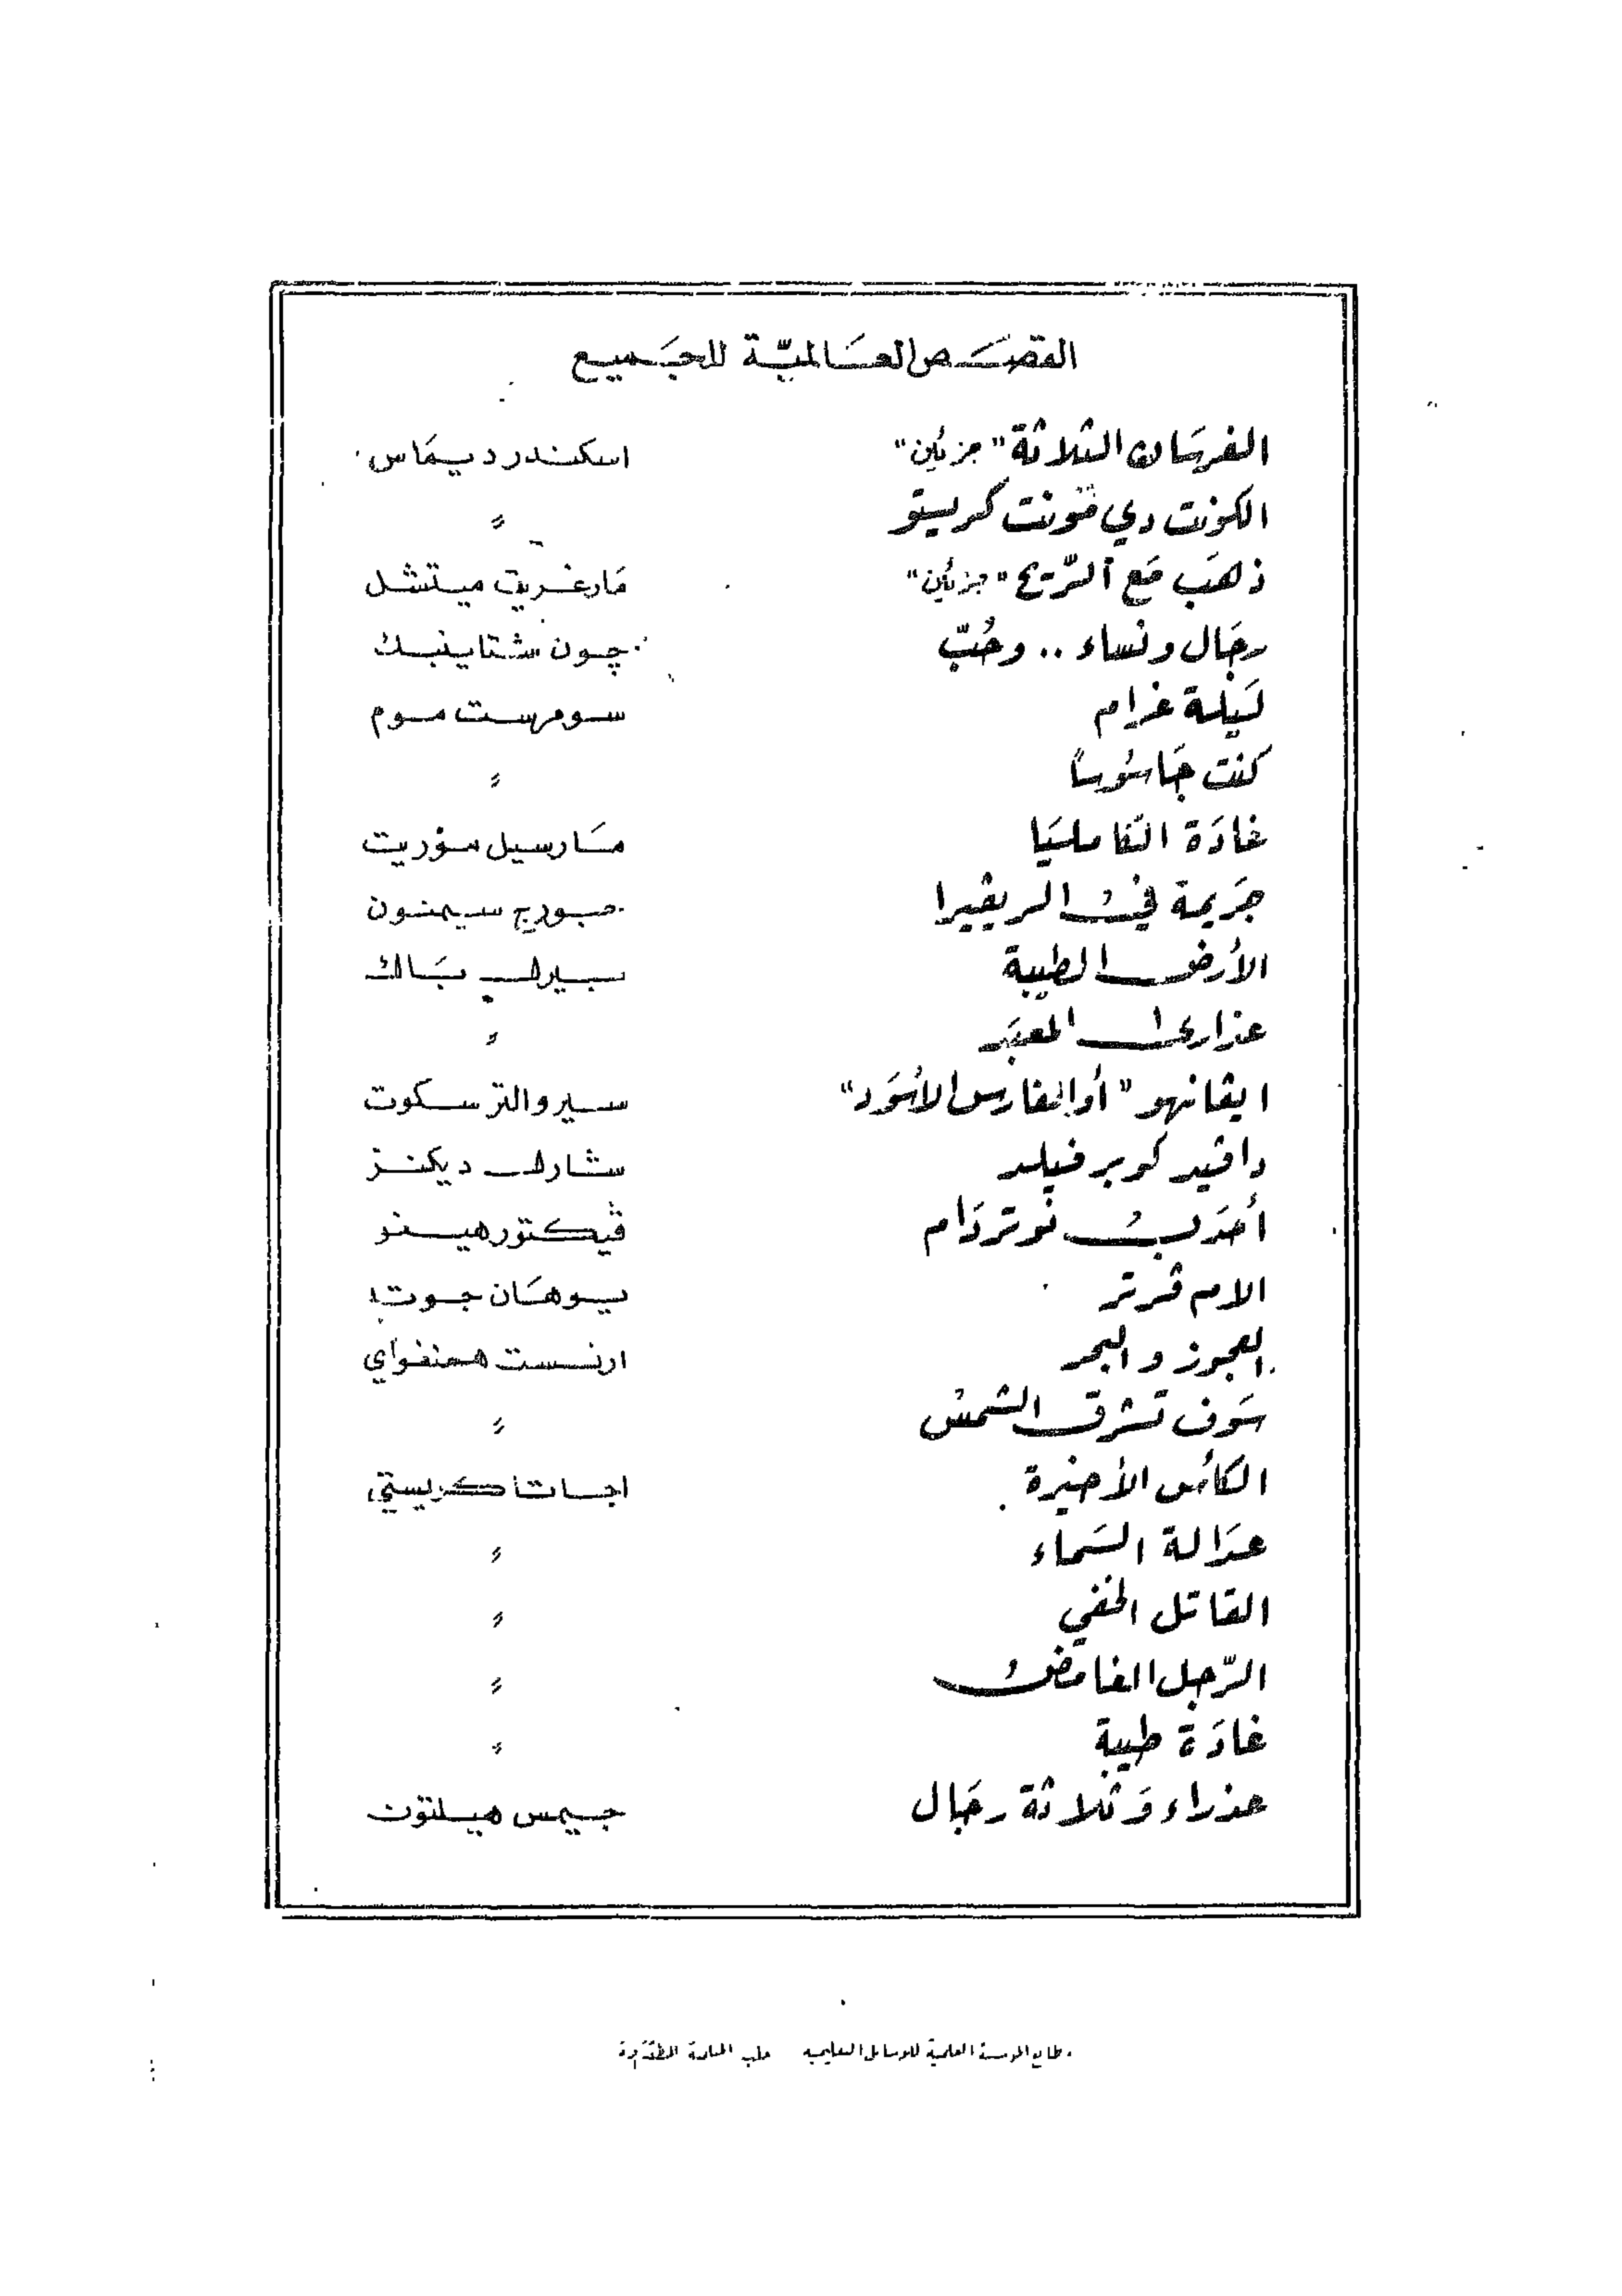 القصَص العَالميّة للجَميع
الفرسَان الثلاثة "جزئين" اسكندر ديمَاس
الكونت دي مونت كريستو "
ذهَب مَع الرّيح "جزئين" مَارغريت ميتشل
رجَال ونساء .. وحُبّ چون شتاينبك
لَيْلة غرام سومرست موم
كنت جَاسُوساً "
غادَة الكامليَا مَارسيل موريت
جَريمة في الريڤييرا جورج سيمنون
الأرض الطيبة بيرل بَاك
عذارى المعبَد "
ايڤانهو "أو الفارس الأسوَد" سير والتر سكوت
داڤيد كوبر فيلد شارل ديكنز
أحدَب نوتردَام ڤيكتور هيغو
الام ڤرتر يوهَان جوته
العجوز والبحر ارنست همنغواي
سَوف تشرق الشمس "
الكأس الأخيرة اجاتا كريستي
عدَالة السَماء "
القاتل الخفي "
الرّجل الغامض "
غادَة طيبة "
عذراء وَثلاثة رجَال جيمس هيلتون
مطابع المؤسسة العلمية للوسائل التعليميه حلب